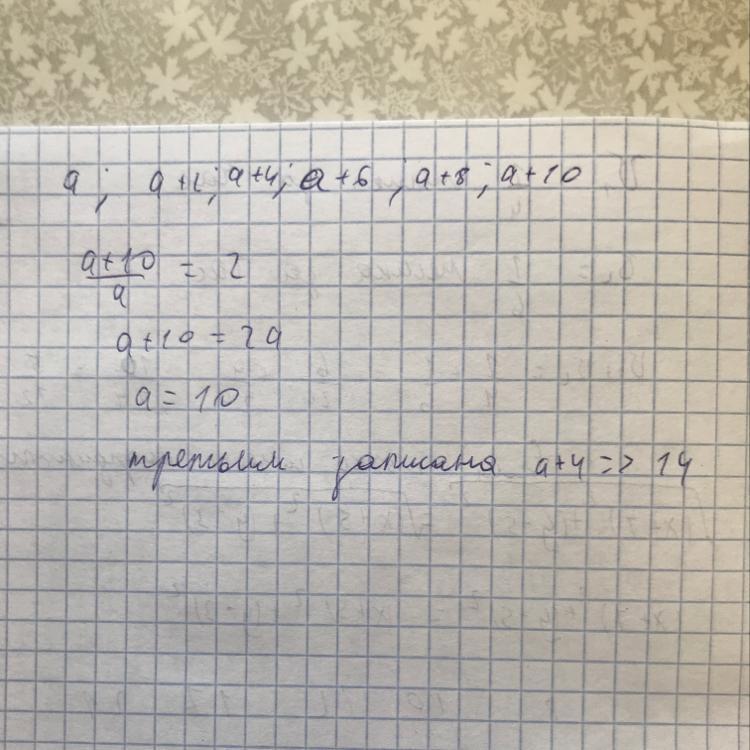 a; a+2; a+4; a+6; a+8; a+10
a+10/a = 2
a+10=2a
a=10
третьим записана a+4 => 14